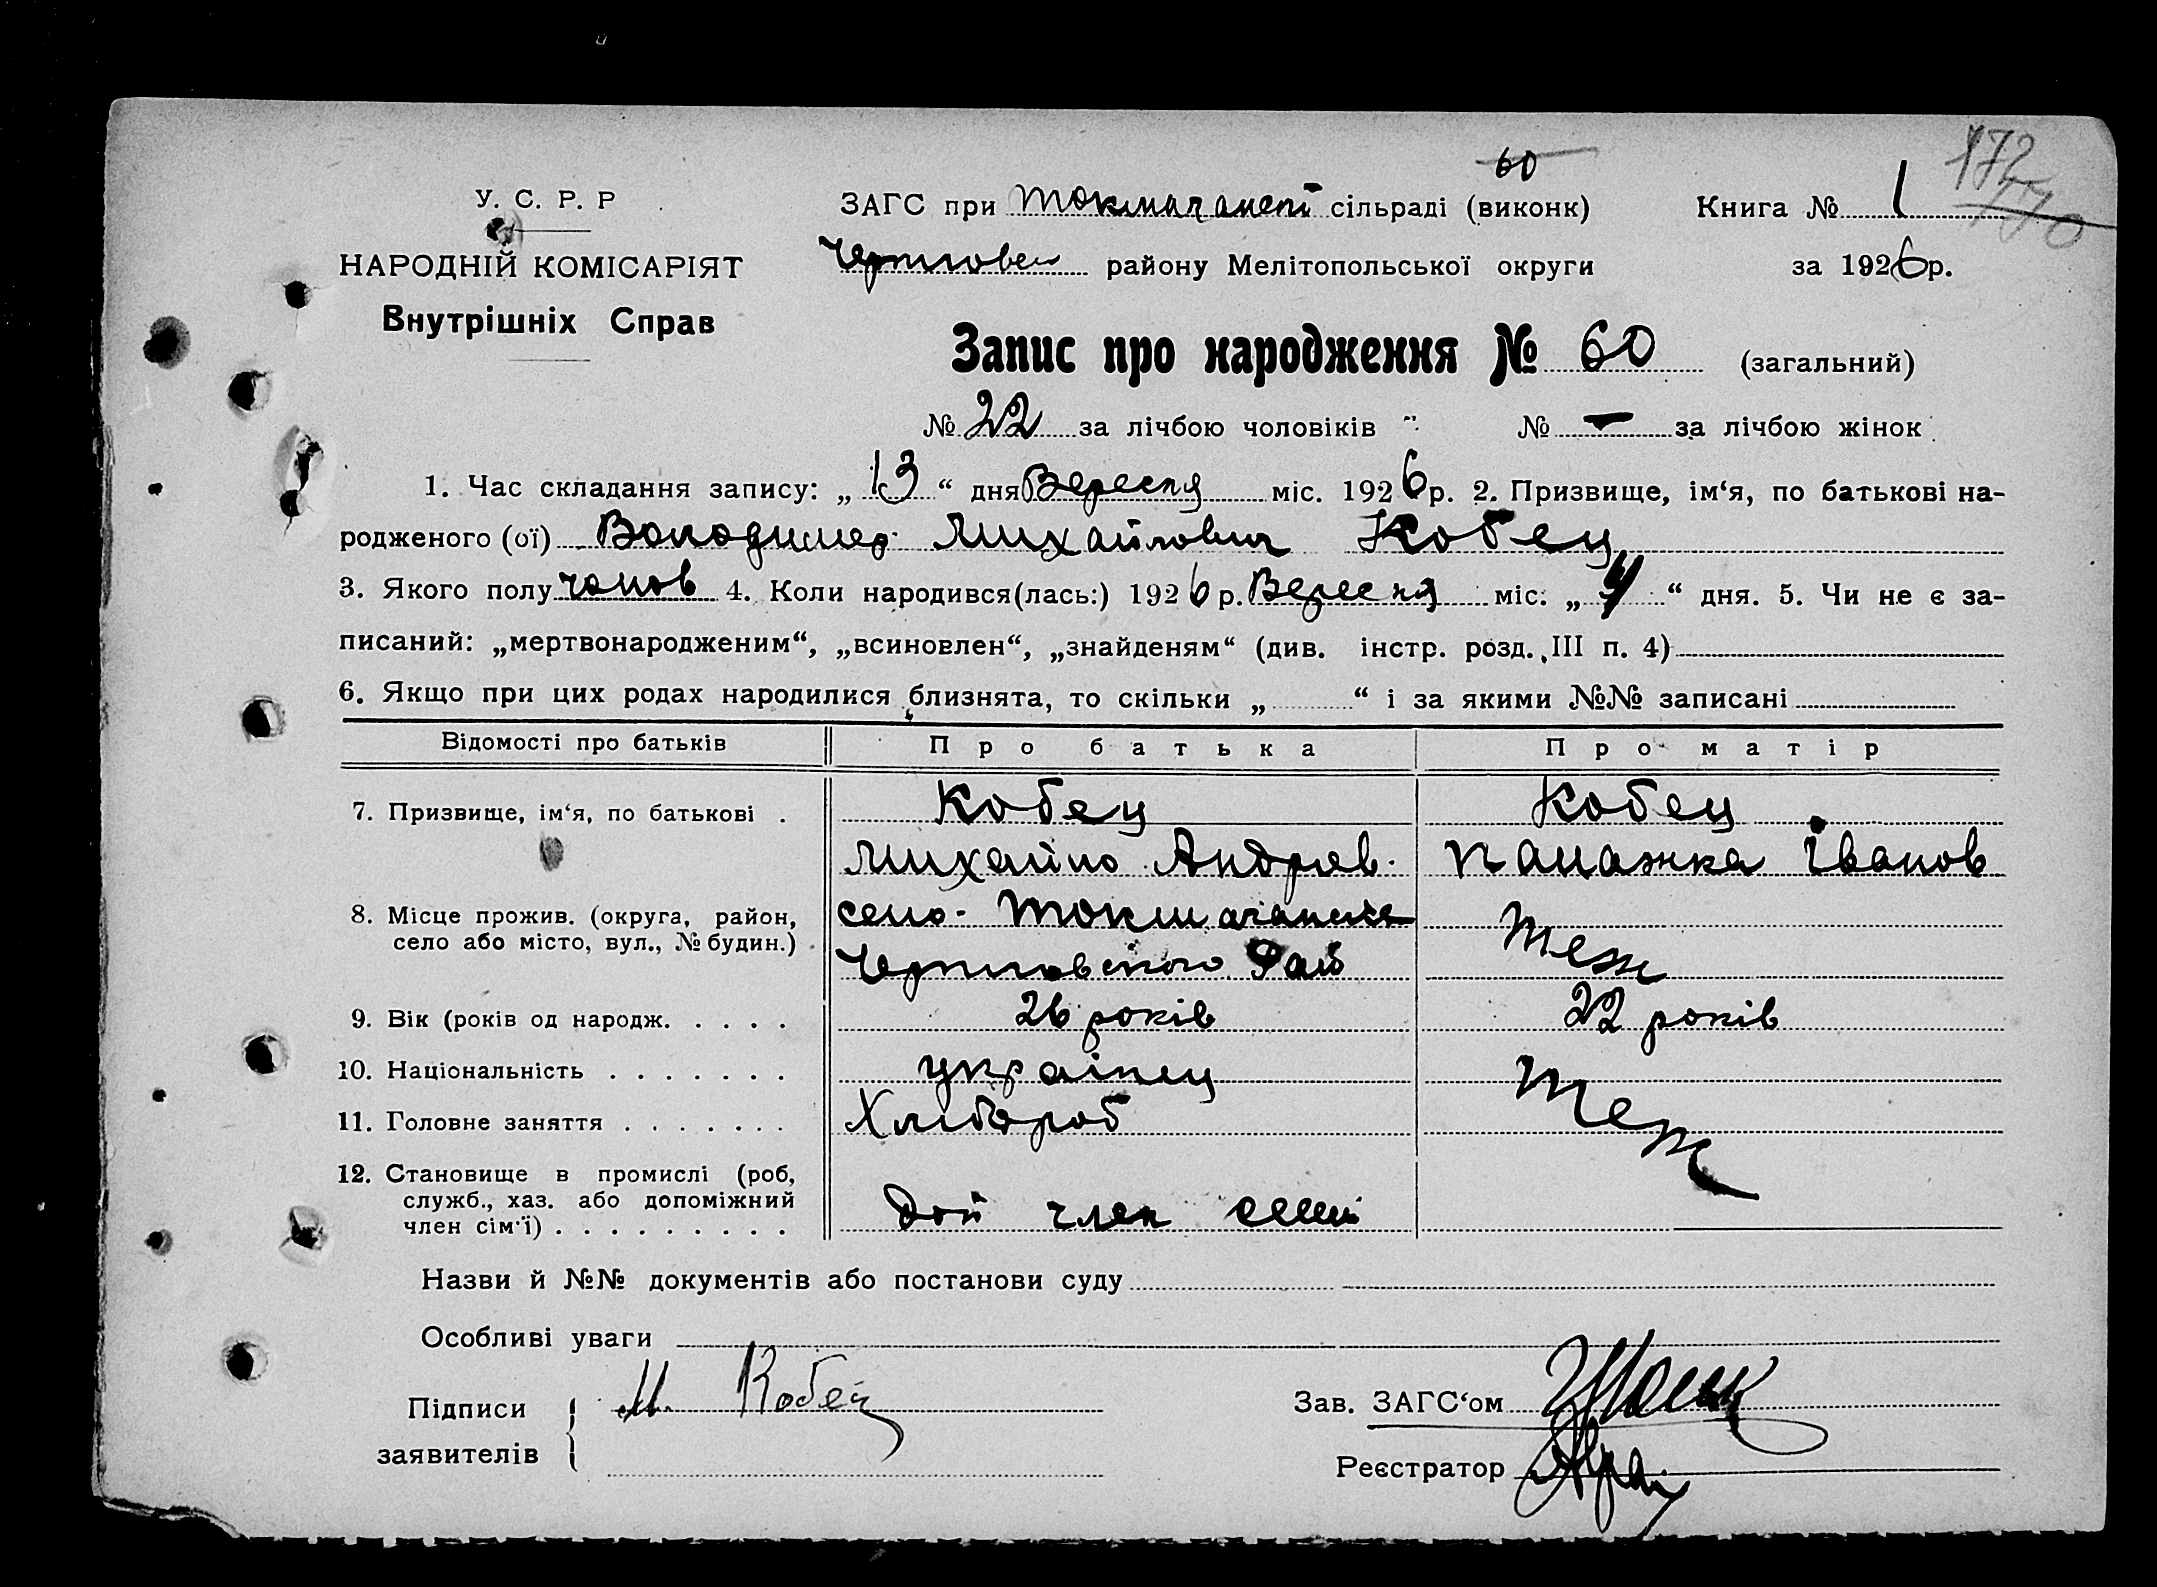 60
172
170
У. С. Р. Р
ЗАГС при Токмачанскі сільраді (виконк) Книга № 1
НАРОДНІЙ КОМІСАРІЯТ
району Мелітопольської округи за 1926р.
Внутрішніх Справ
Запис про народження № 60 (загальний)
№ 22 за лічбою чоловіків № — за лічбою жінок
1. Час складання запису: „ 13 “ дня Вересня міс. 1926р. 2. Призвище, ім‘я, по батькові на-
родженого (ої) Володимер Михайлович Кобец
3. Якого полу чолов 4. Коли народився(лась:) 1926 р. Вересня міс: „ 4 “ дня. 5. Чи не є за-
писаний: „мертвонародженим“, „всиновлен“, „знайденям“ (див. інстр. розд. III п. 4)
6. Якщо при цих родах народилися близнята, то скільки „ “ і за якими №№ записані
Відомості про батьків Про батька Про матір
7. Призвище, ім‘я, по батькові . Кобец Кобец
Михайло Андрієв. Панажка Іванов
8. Місце прожив. (округа, район, село-
село або місто, вул., № будин.) . Рай Теж
9. Вік (років од народж. . . . . 26 років 22 років
10. Національність . . . . . . . українец Теж
11. Головне заняття . . . . . . . Хлібороб
12. Становище в промислі (роб,
служб., хаз. або допоміжний
член сім‘ї) . . . . . . . . . доп член семі
Назви й №№ документів або постанови суду
Особливі уваги
Підписи М. Кобец Зав. ЗАГС‘ом
заявителів Реєстратор